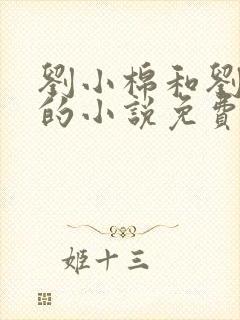 劉小棉和劉
的小說免費
姬十三